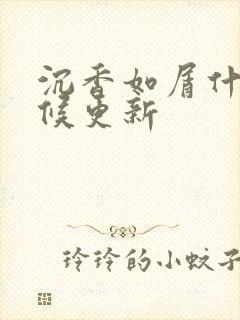 沉香如屑什
候更新
玲玲的小蚊子